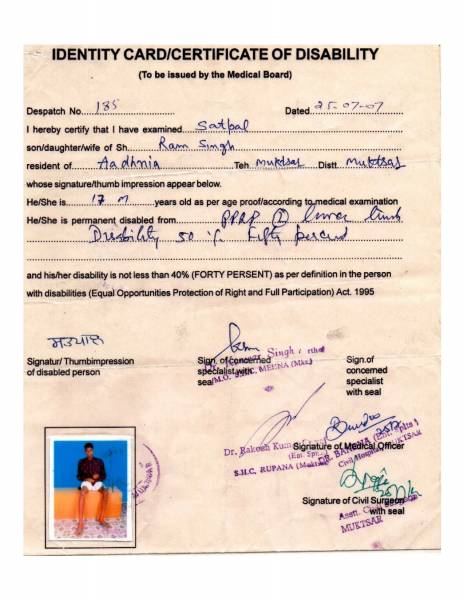 IDENTITY CARD/CERTIFICATE OF DISABILITY
(To be issued by the Medical Board)
Despatch No. 185 Dated 25-07-07
I hereby certify that I have examined Satpal
son/daughter/wife of Sh. Ram Singh
resident of Aadhnia Teh. Muktsar Distt. Muktsar
whose signature/thumb impression appear below.
He/She is 17 M years old as per age proof/according to medical examination
He/She is permanent disabled from PPRP lower limb
Disability 50 % Fifty percent
and his/her disability is not less than 40% (FORTY PERSENT) as per definition in the person
with disabilities (Equal Opportunities Protection of Right and Full Participation) Act. 1995
Signatur/Thumbimpression
of disabled person
Sign. of concerned
specialist with
seal
Singh
Sign.of
concerned
specialist
with seal
Dr. Rakesh Kum
S.H.C. RUPANA
Signature of Medical Officer
DR. BANDANA
Civil Hospital MUKTSAR
Signature of Civil Surgeon
with seal
Asstt. Civil
MUKTSAR
MUKTSAR